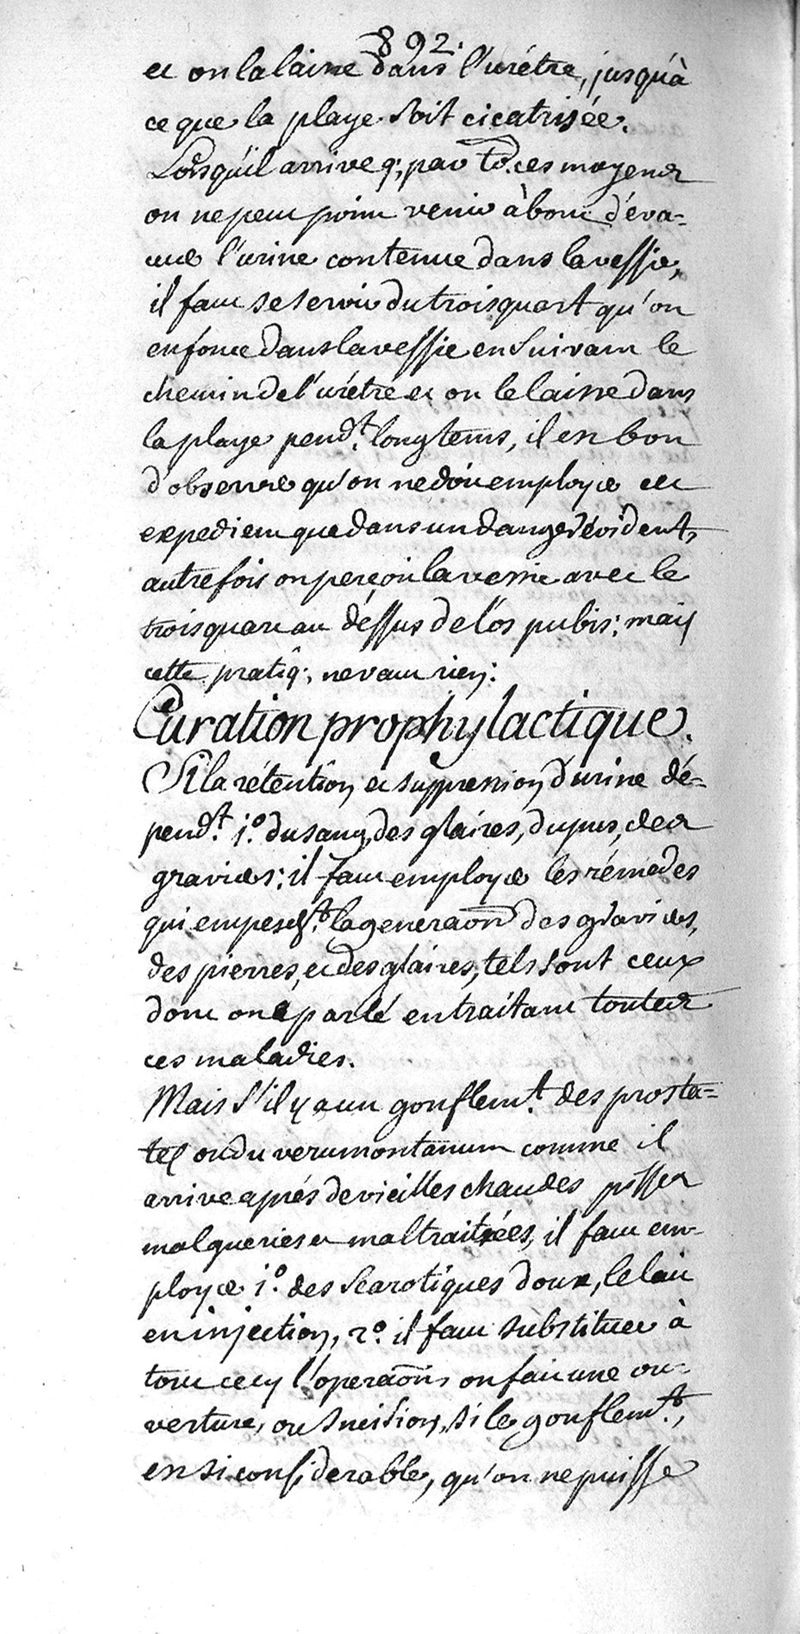 892.
et on la laisse dans l'urétre, jusqu'à
ce que la playe soit cicatrisée.
Lorsqu'il arrive q; par ts. ces moyens
on ne peut point venir à bout d'éva=
cuer l'urine contenue dans la vessie,
il faut se servir du troisquart qu'on
enfonce dans la vessie en suivant le
chemin de l'urétre et on le laisse dans
la playe pendt. longtems, il est bon
d'observer qu'on ne doit employer cet
expedient que dans un danger évident,
autrefois on perçoit la vessie avec le
troisquart au déssus de l'os pubis: mais
cette pratiq. ne vaut rien:
Curation prophylactique.
Si la rétention et suppression d'urine dé=
pendt. 1°. du sang, des glaires, du pus, des
graviers: il faut employer les rémedes
qui empescht. la generaon des graviers,
des pierres, et des glaires, tels sont ceux
dont on a parlé en traitant toutes
ces maladies.
Mais s'il y a un gonflemt. des prosta=
tes ou du verumontanum comme il
arrive aprés de vieilles chaudes pisses
mal gueries et maltraitées, il faut em-
ployer 1°. des scarotiques doux, le lait
en injection, 2°. il faut substituer à
tout cecy l'operaon, on fait une ou-
verture, ou incision, si le gonflemt.,
est si considerable, qu'on ne puisse